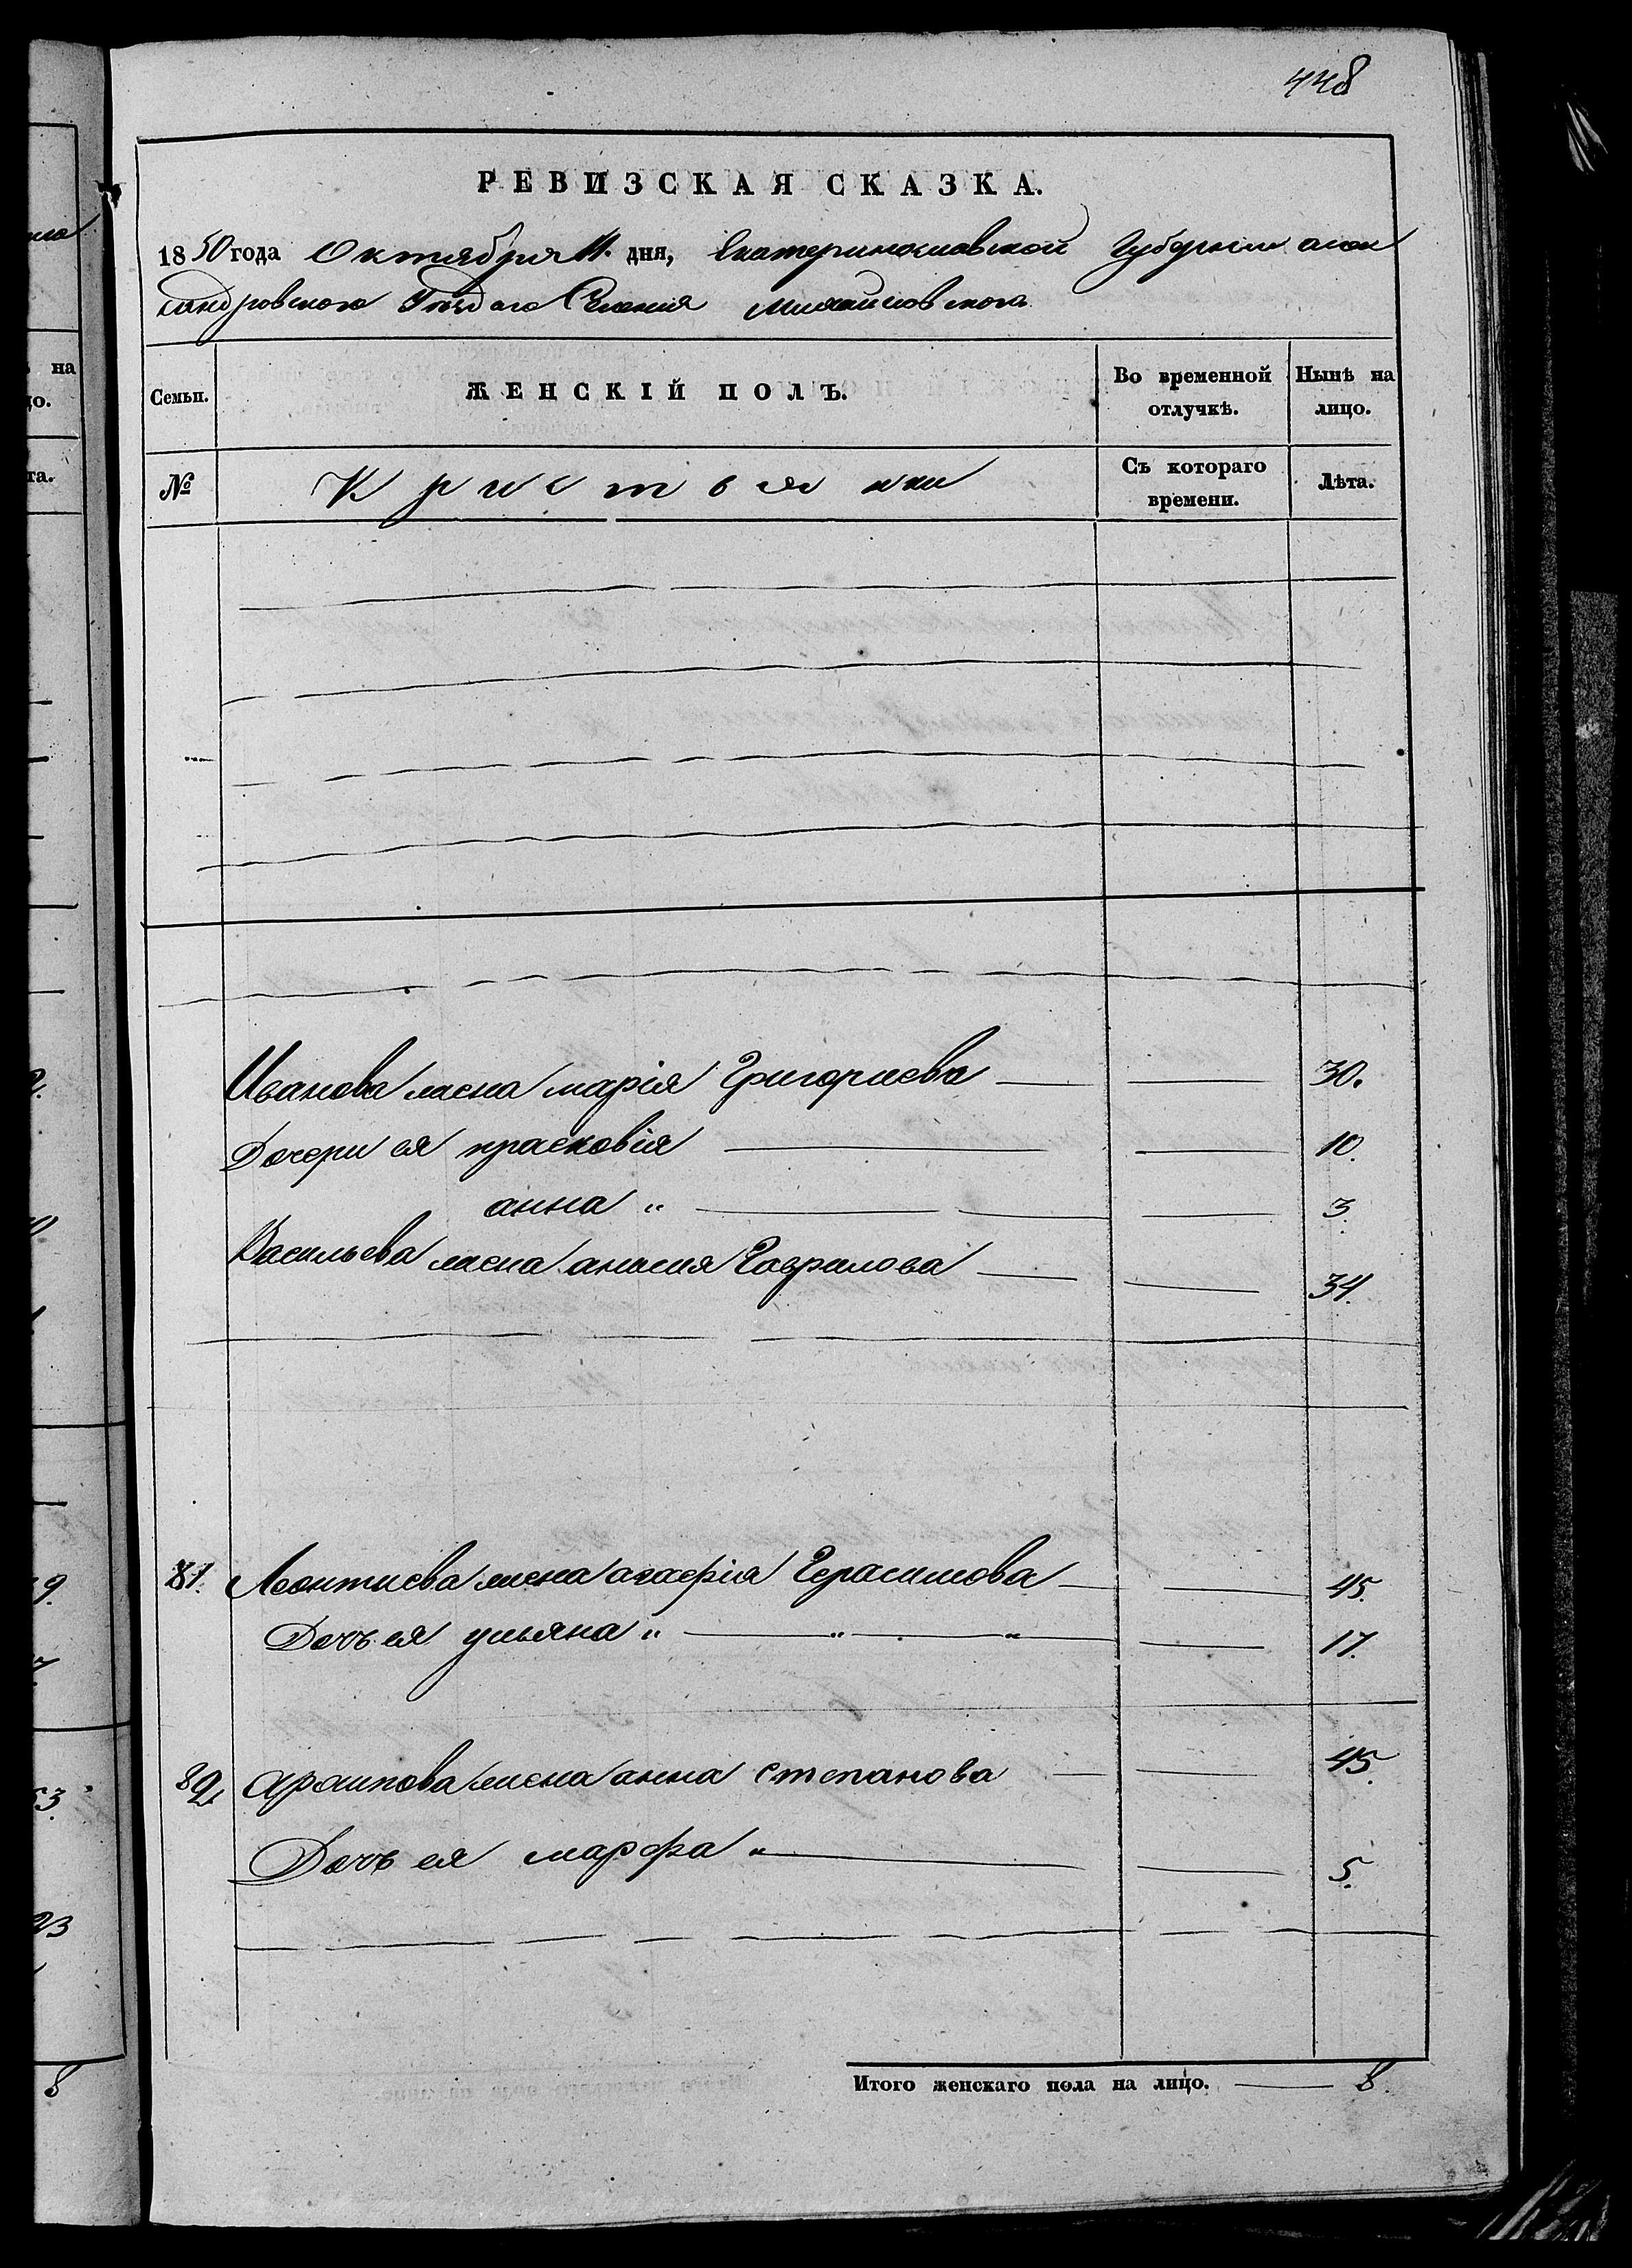 448
РЕВИЗСКАЯ СКАЗКА.
1850 года Октября 11. дня, Екатеринославской Губернии алек
сандровского Уезда Селения Михайловскога
Семьи.
ЖЕНСКІЙ ПОЛЪ.
Во временной отлучкѣ.
Нынѣ на лицо.
№
Кристьянки
Съ котораго времени.
Лѣта.
Иванова жена марія Григориева 30.
Дочери ея прасковія 10.
анна „ 3.
Васильева жена анисия Гаврилова 34.
81. Леонтиева жена агафія Герасимова 45.
Дочъ ея ульяна „ 17.
82 архипова жена анна Степанова 45.
Дочъ ея марфа „ 5.
Итого женскаго пола на лицо. 8.